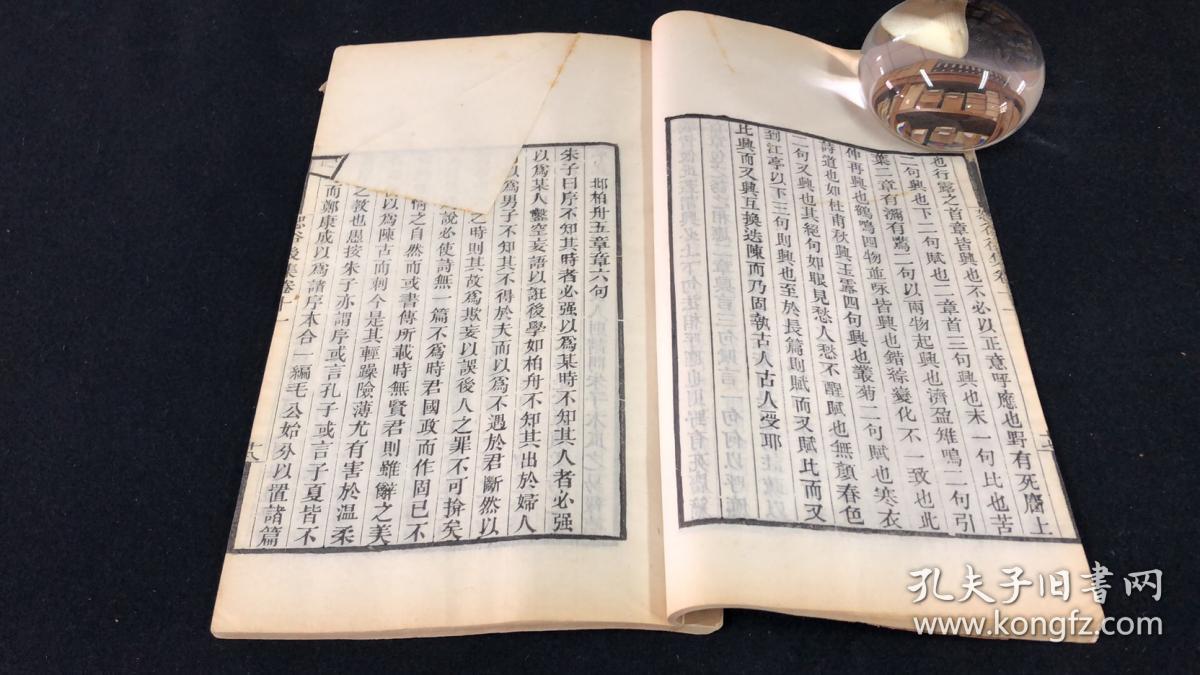 也行露之首章皆興也不必以正意呼應也野有死麕上
二句興也下二句賦也二章首三句興也末一句比也苦
葉二章有瀰有鷕二句以兩物起興也濟盈雉鳴一句引
伸再興也鶴鳴四物並咏皆興也錯綜變化不一致也此
詩道也如杜甫秋興玉露四句興也叢菊二句賦也寒衣
二句又興也其絕句如眼見愁人愁不醒賦也無頼春色
到江亭以下三句則興也至於長篇則賦而又賦比而又
比興而又興互換迭陳而乃固執古人古人受耶
邶柏舟五章章六句
朱子曰序不知其時者必强以爲某時不知其人者必强
以爲某人鑿空妄語以誑後學如柏舟不知其出於婦人
以爲男子不知其不得於夫而以爲不遇於君斷然以
之時則其故爲欺妄以誤後人之罪不可揜矣
說必使詩無一篇不爲時君國政而作固已不
情之自然而或書傳所載時無賢君則雖辭之美
以爲陳古而刺今是其輕躁險薄尤有害於温柔
之教也愚按朱子亦謂序或言孔子或言子夏皆不
而鄭康成以爲諸序本合一編毛公始分以置諸篇
恕谷後集卷十一
十八
孔夫子旧書网
www.kongfz.com